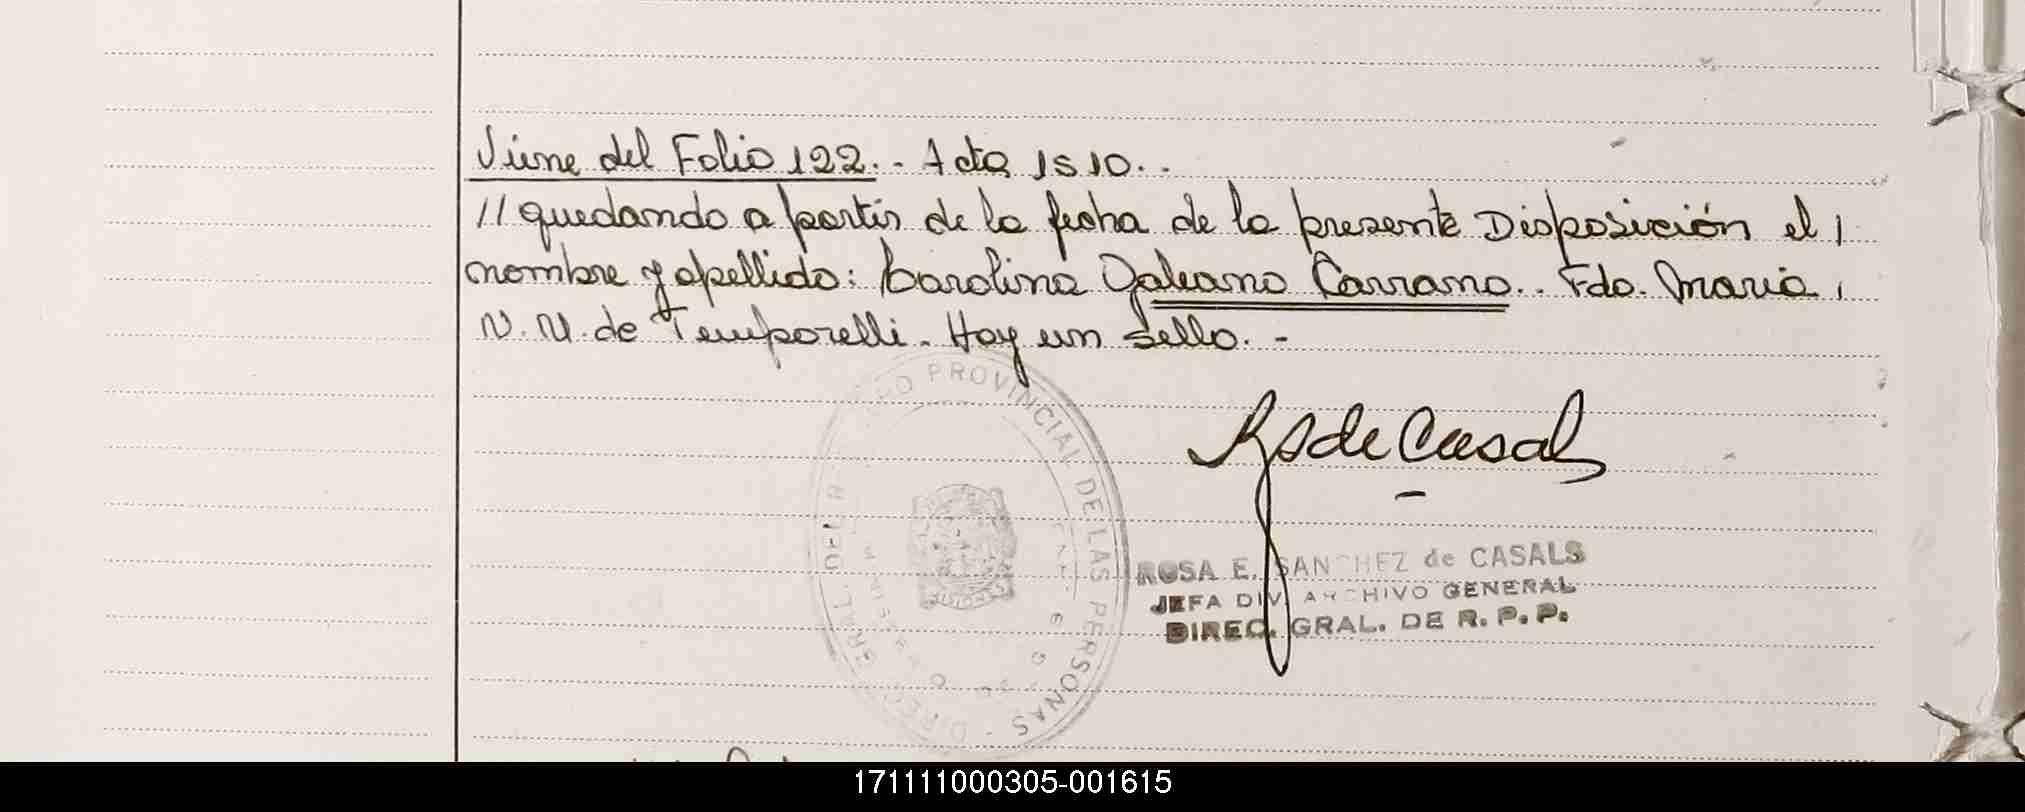 Viene del Folio 122.- Acta 1510.-
//quedando a partir de la fecha de la presente Disposición el /
nombre y apellido: Carolina Galeano Carrano.. Fdo. Maria,
N.N. de Temporelli. Hay un sello.-
RS de Casals
ROSA E. SANCHEZ de CASALS
JEFA DIV. ARCHIVO GENERAL
DIREC. GRAL. DE R. P. P.
PROVINCIAL DE LAS PERSONAS
171111000305-001615